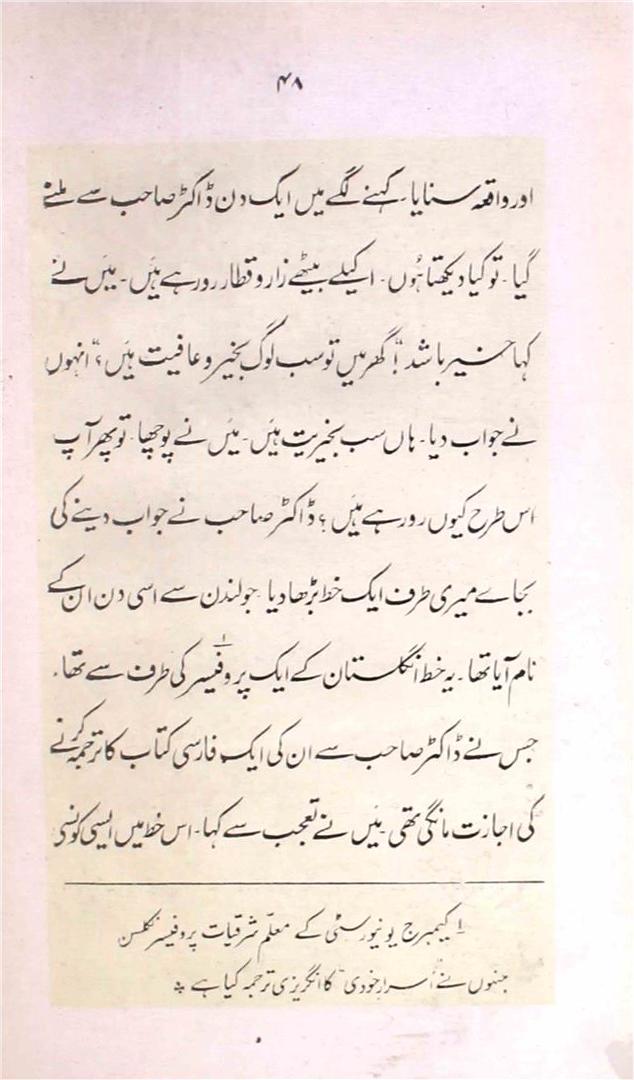 ۴۸
اور واقعہ سنایا۔ کہنے لگے میں ایک دن ڈاکٹر صاحب سے ملنے
گیا۔ تو کیا دیکھتا ہُوں۔ اکیلے بیٹھے زار و قطار رو رہے ہیَں۔ میَں نے
کہا خیر باشد"! گھر میں تو سب لوگ بخیر و عافیت ہیَں؟" انہوں
نے جواب دیا۔ ہاں سب بخیریت ہیَں۔ میَں نے پوچھا۔ تو پھر آپ
اس طرح کیوں رو رہے ہیَں؟ ڈاکٹر صاحب نے جواب دینے کی
بجاے میری طرف ایک خط بڑھا دیا جو لندن سے اسی دن ان کے
نام آیا تھا۔ یہ خط انگلستان کے ایک پروفیسر۱ کی طرف سے تھا۔
جس نے ڈاکٹر صاحب سے ان کی ایک فارسی کتاب کا ترجمہ کرنے
کی اجازت مانگی تھی۔ میَں نے تعجب سے کہا۔ اس خط میں ایسی کونسی
۱ کیمبرج یونیورسٹی کے معلّم شرقیات پروفیسر نکلسن
جنہوں نے "اسرار خودی" کا انگریزی ترجمہ کیا ہے *